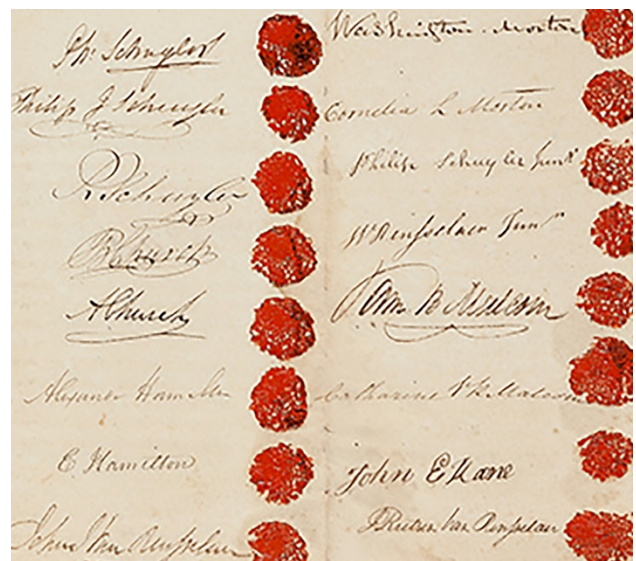 Ph: Schuyler
Philip J Schuyler
R Schuyler
B Church
A Church
Alexander Hamilton
E Hamilton
John Van Rensselaer
Washington Morton
Cornelia L Morton
Philip Schuyler Junr
Rensselaer Junr
Malcom
Catharine V R Malcom
John E Kane
Van Rensselaer